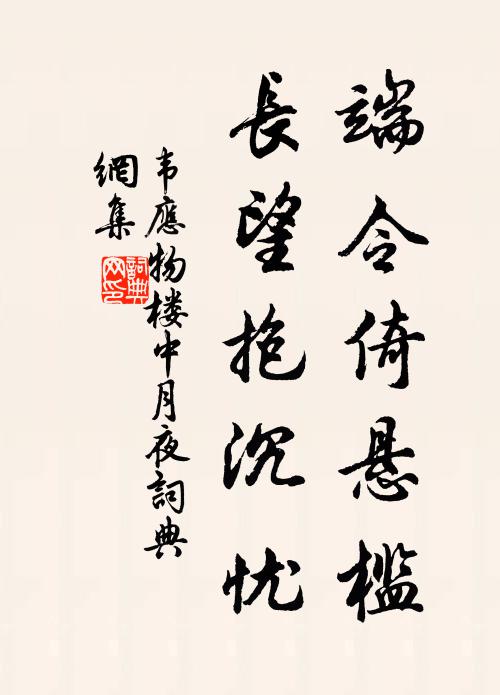 端令倚悬槛
長望抱沉忧
韦應物楼中月夜詞典
網集
詞典網印